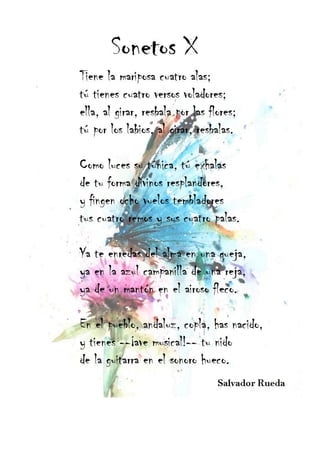 Sonetos X
Tiene la mariposa cuatro alas;
tú tienes cuatro versos voladores;
ella, al girar, resbala por las flores;
tú por los labios, al girar, resbalas.
Como luces su túnica, tú exhalas
de tu forma divinos resplandores,
y fingen ocho vuelos tembladores
tus cuatro remos y sus cuatro palas.
Ya te enredas del alma en una queja,
ya en la azul campanilla de una reja,
ya de un mantón en el airoso fleco.
En el pueblo, andaluz, copla, has nacido,
y tienes --¡ave musical!-- tu nido
de la guitarra en el sonoro hueco.
Salvador Rueda